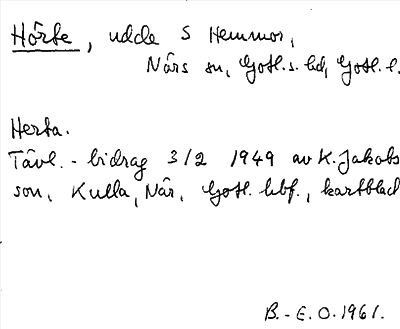 Hörte, udde S Hemmor,
Närs sn, Gotl. s. hd, Gotl. l.
Herta.
Tävl.-bidrag 3/2 1949 av K. Jakobs
son, Kulla, När, Gotl. hbf., kartblad
B.-E. O. 1961.